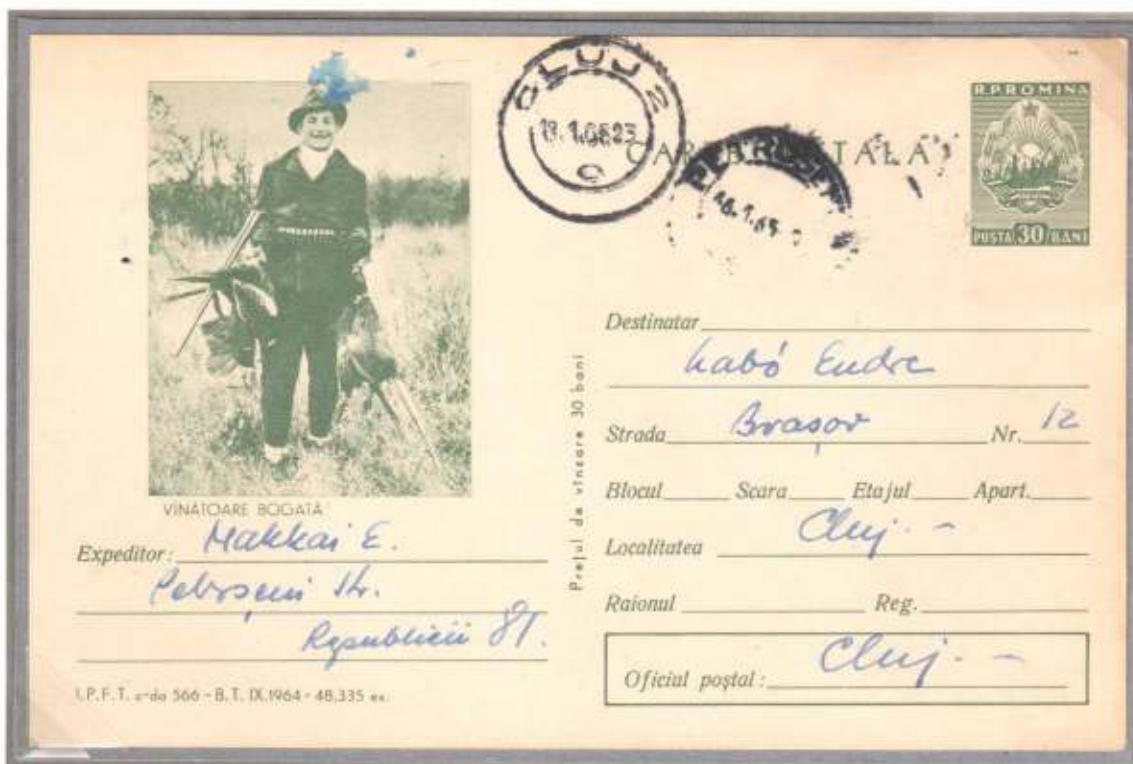 CLUJ 2
18.1.65 23
CARTĂ POȘTALĂ
R.P.ROMINA
POSTA 30 BANI
VÎNĂTOARE BOGATĂ
Expeditor: Makkai E.
Petroșeni Str.
Republicii 81.
I.P.F.T. c-da 566 - B.T. IX.1964 - 48.335 ex.
Prețul de vînzare 30 bani
Destinatar
Labó Endre
Strada Brașov Nr. 12
Blocul Scara Etajul Apart.
Localitatea Cluj. -
Raionul Reg.
Oficiul poștal: Cluj. -